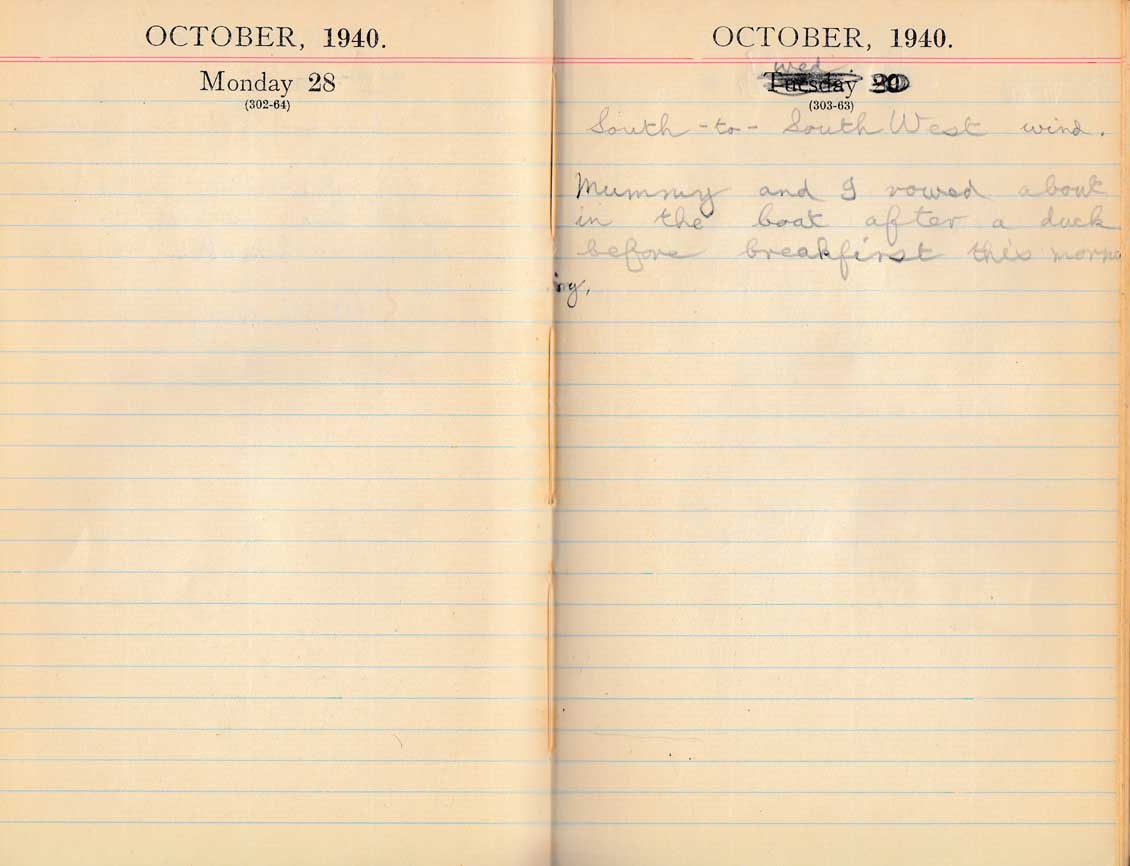 OCTOBER, 1940.
Monday 28
(302-64)
OCTOBER, 1940.
wed
Tuesday
(303-63)
South-to-South West wind.
Mummy and I rowed about
in the boat after a duck
before breakfirst this morn
ing,